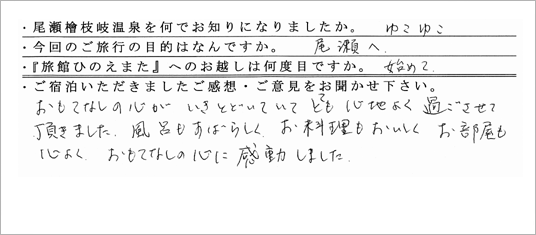 ・尾瀬檜枝岐温泉を何でお知りになりましたか。 ゆこゆこ
・今回のご旅行の目的はなんですか。 尾瀬へ
・『旅館ひのえまた』へのお越しは何度目ですか。 始めて
・ご宿泊いただきましたご感想・ご意見をお聞かせ下さい。
おもてなしの心が いきとどいていて とても 心地よく 過ごさせて
頂きました。風呂もすばらしく、お料理もおいしく お部屋も
心よく、おもてなしの心に 感動しました。